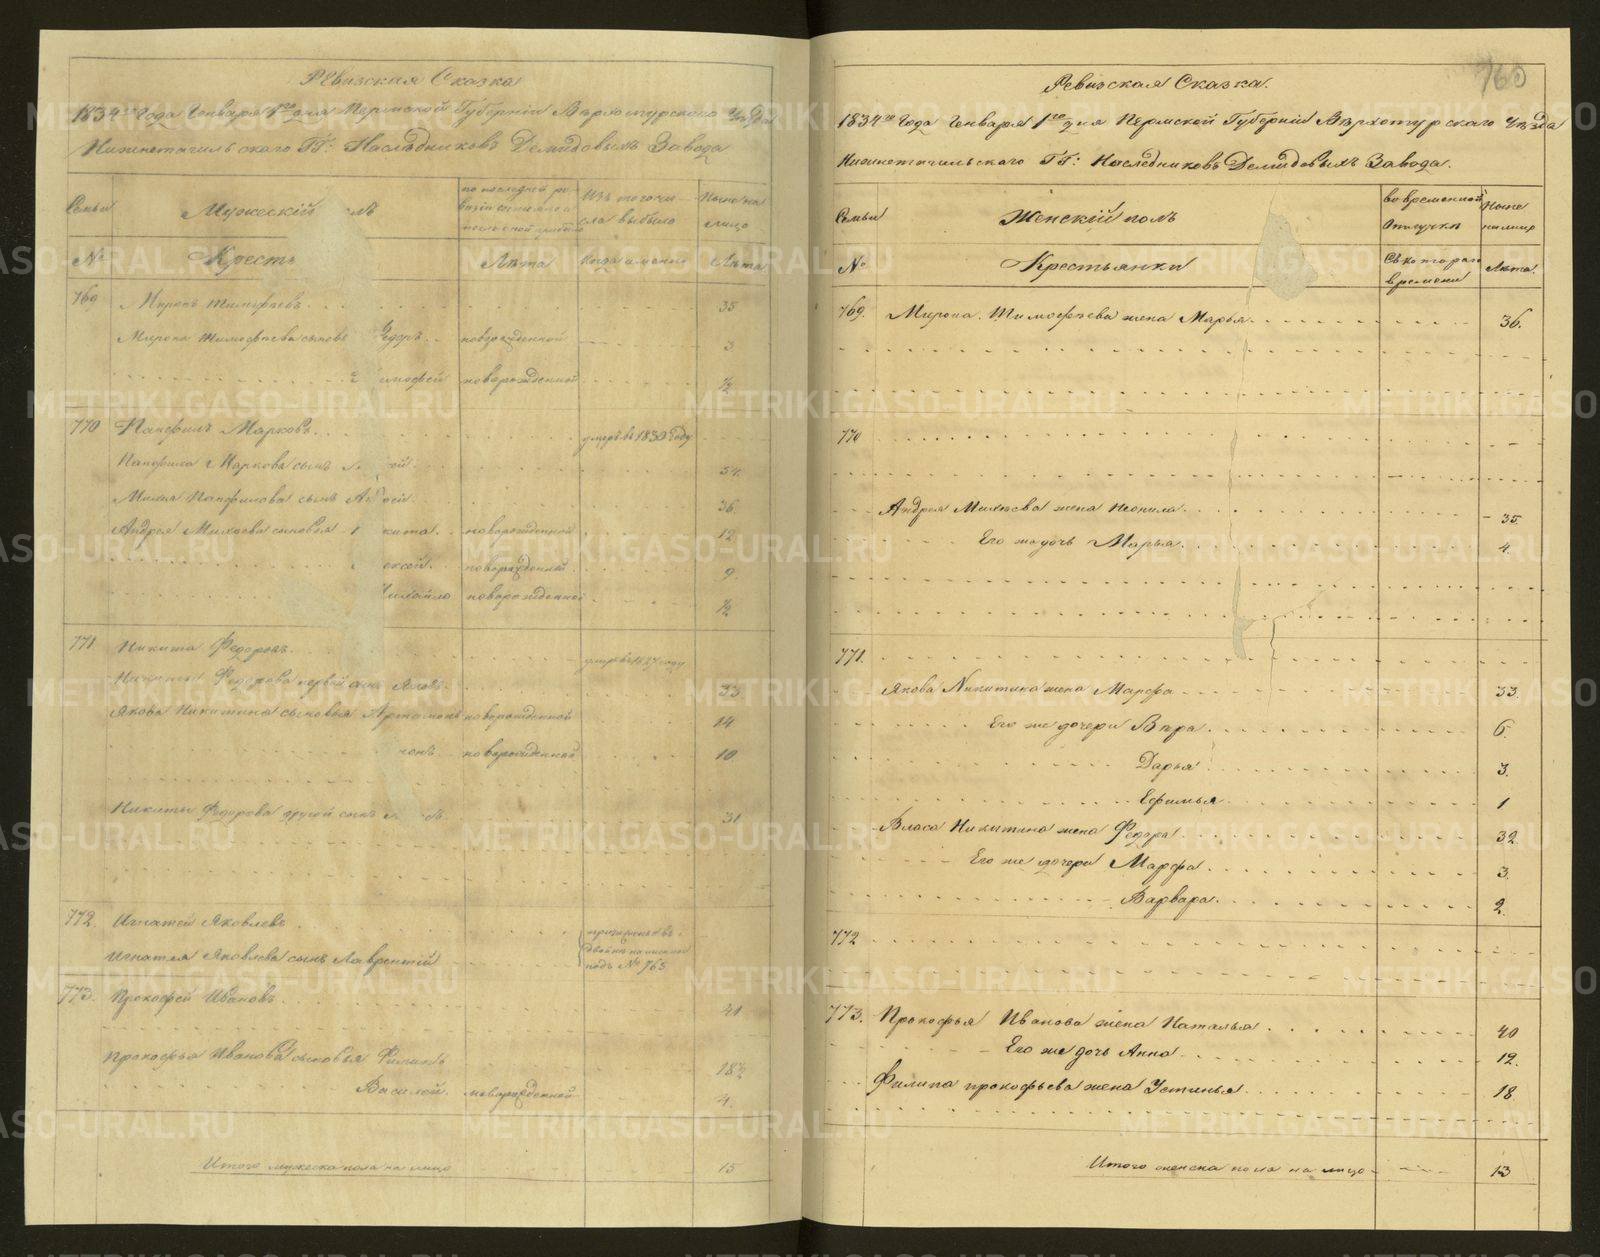 Ревизская Сказка
1834го Года Генваря 1го дня Пермской Губернiи Верхотурскаго Уѣзда
Нижнетагильскаго ГГ: Наслѣдниковъ Демидовыхъ Завода
Семьи
Мужескiй
лъ
по последней ре-
визiи состояло и
после оной прибыло
Изъ того чи-
сла выбыло
Ныне на
лицо
№
Крестъ
Лѣта
Когда именно
Лѣта
769
Миронъ Тимофѣевъ
35
Мирона Тимофѣева сыновь
Федоръ
новорожденной
3
2
имофей
новорожденной
½
770
Панфилъ Марковъ
умеръ въ 1830 году
Панфила Маркова сынъ
ей
34
Михея Панфилова сынъ Андрей
36
Андрея Михеева сыновья
кита
новорожденной
12
ексей
новорожденной
9
Михайло
новорожденной
½
771
Никита Федоровъ
умеръ въ 1827 году
Никиты Федорова первой сынъ Яковъ
33
Якова Никитина сыновья Артамонъ
новорожденной
14
онъ
новорожденной
10
Никиты Федорова другой сынъ
съ
31
772
Игнатей Яковлевъ
Игнатея Яковлева сынъ Лаврентiй
двойнѣ написаны
подъ № 765
773
Прокофей Ивановъ
41
Прокофья Иванова сыновья Филипъ
18½
Василей
новорожденной
4
Итого мужеска пола на лицо
15
760
Ревизская Сказка.
1834го Года Генваря 1го дня Пермской Губернiи Верхотурскаго Уѣзда
Нижнетагильскаго ГГ: Наслѣдниковъ Демидовыхъ Завода.
Семьи
Женскiй полъ
во временной
отлучкѣ
Ныне
на лицо
№
Крестьянки
Съ котораго
времени
Лѣта.
769.
Мирона Тимофѣева жена Марья
36.
770
Андрея Михѣева жена Неонила
35
Его же дочь Марья
4.
771.
Якова Никитина жена Марфа
33.
Его же дочери Вѣра
6.
Дарья
3.
Ефимья
1
Власа Никитина жена Федора
32.
Его же дочери Марфа
3.
Варвара
2.
772
773.
Прокофья Иванова жена Наталья
40
Его же дочь Анна
12.
Филипа Прокофьева жена Устинья
18
Итого женска пола на лицо
13
METRIKI.GASO-URAL.RU